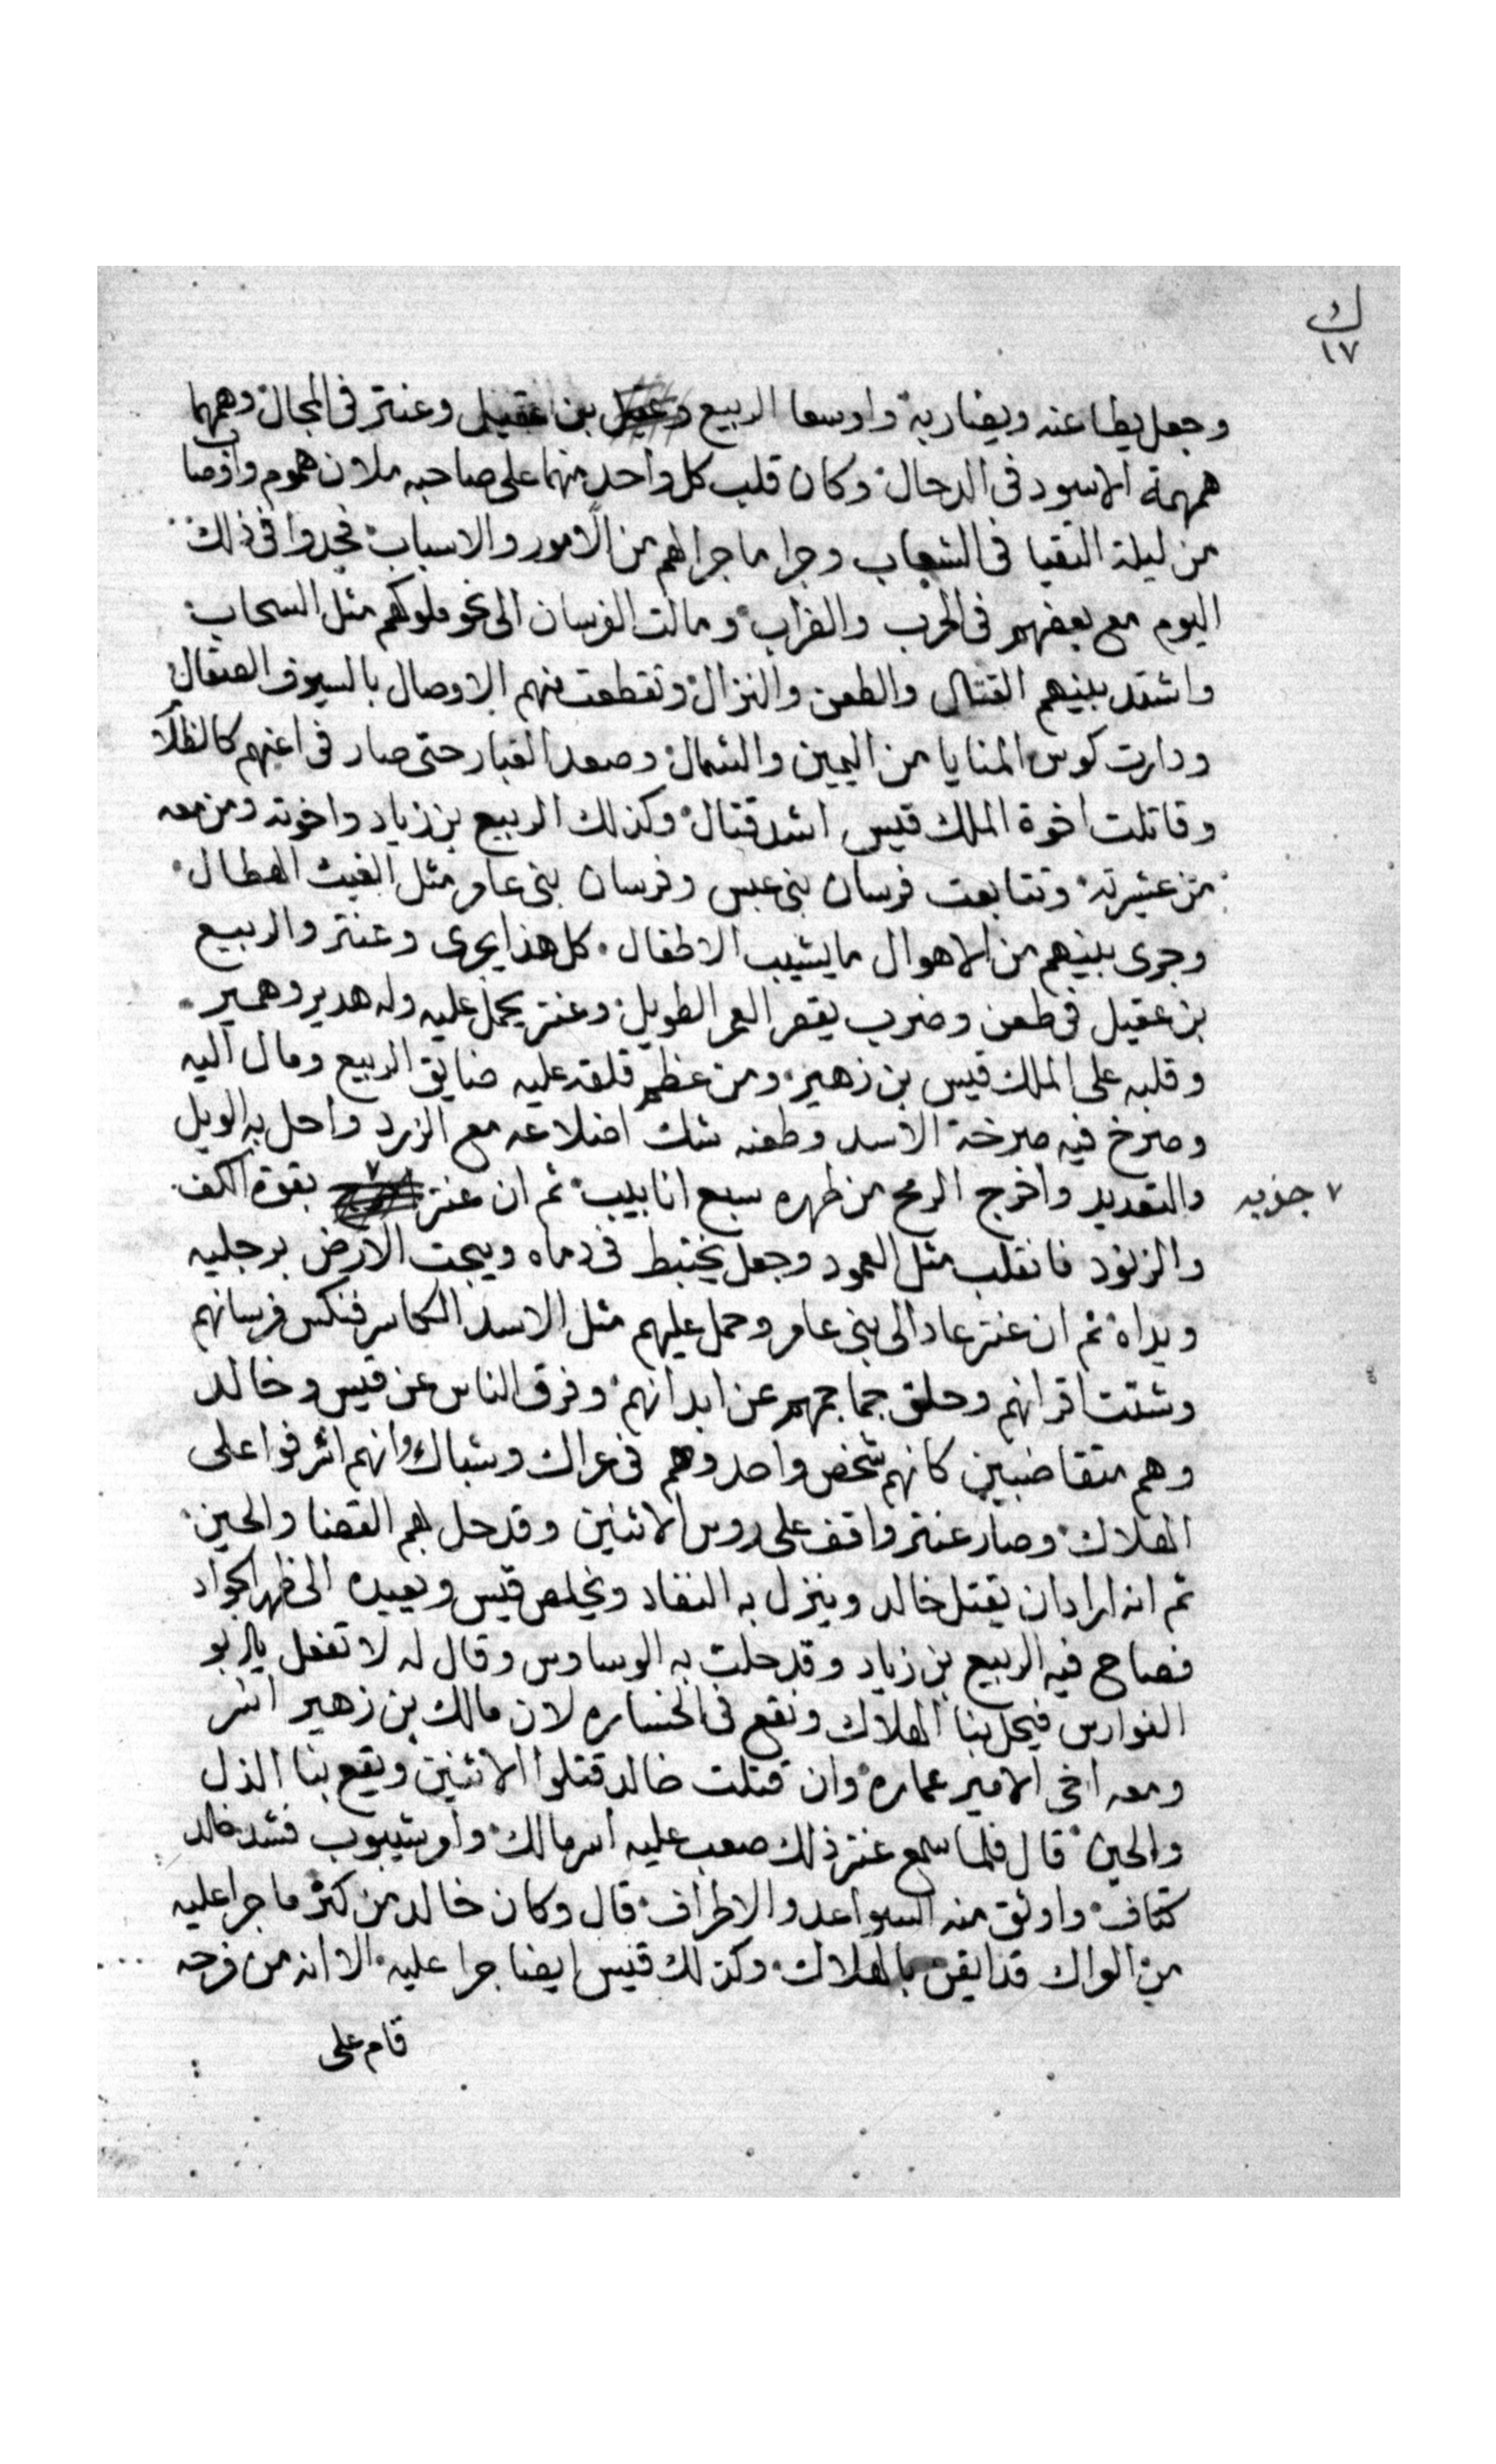 ك
١٧
وجعل يطاعنه ويضاربه واوسعا الربيع بن عقيل وعنتر فى المجال وهمهما
همهمة الاسود فى الدحال وكان قلب كل واحد منهما على صاحبه ملان هموم واوصاب
من ليلة التقيا فى الشعاب وجرا ما جرا لهم من الامور والاسباب فجدوا فى ذلك
اليوم مع بعضهم فى الحرب والضراب ومالت الفرسان الى نحو ملوكهم مثل السحاب
واشتد بينهم القتال والطعن والنزال وتقطعت منهم الاوصال بالسيوف الصقال
ودارت كوس المنايا من اليمين والشمال وصعد الغبار حتى صار فى اعينهم كالظلال
وقاتلت اخوة الملك قيس اشد قتال وكذلك الربيع بن زياد واخوته ومن معه
من عشيرته وتتابعت فرسان بنى عبس وفرسان بنى عامر مثل الغيث الهطال
وجرى بينهم من الاهوال ما يشيب الاطفال كل هذا يجرى وعنتر والربيع
بن عقيل فى طعن وضرب يقصر العمر الطويل وعنتر يحمل عليه وله هدير وهمير
وقلبه على الملك قيس بن زهير ومن عظم قلقه عليه ضايق الربيع ومال اليه
وصرخ فيه صرخة الاسد وطعنه شك اضلاعه مع الزرد واحل به الويل
والتعديد واخرج الرمح من ظهره سبع انابيب ثم ان عنتر ٧ بقوة الكف
٧ جذبه
والزنود فانقلب مثل العمود وجعل يختبط فى دماه ويبحت الارض برجليه
ويداه ثم ان عنتر عاد الى بنى عامر وحمل عليهم مثل الاسد الكاسر فنكس فرسانهم
وشتت اقرانهم وحلق جماجمهم عن ابدانهم وفرق الناس عن قيس وخالد
وهم متقاضبين كانهم شخص واحد وهم فى عراك وشباك وانهم اشرفوا على
الهلاك وصار عنتر واقف على روس الاثنين وقد حل بهم القضا والحين
ثم انه اراد ان يقتل خالد وينزل به النفاد ويخلص قيس ويعيده الى ظهر الجواد
فصاح فيه الربيع بن زياد وقد حلت به الوساوس وقال له لا تفعل يا ابو
الفوارس فيحل بنا الهلاك ونقع فى الخساره لان مالك بن زهير اسر
ومعه اخى الامير عماره وان قتلت خالد قتلوا الاثنين ويقع بنا الذل
والحين قال فلما سمع عنتر ذلك صعب عليه اسر مالك وامر شيبوب فشد خالد
كتاف واوثق منه السواعد والاطراف قال وكان خالد من كثر ما جرا عليه
من العراك قد ايقن بالهلاك وكذلك قيس ايضا جرا عليه الا انه من فرحه
قام على